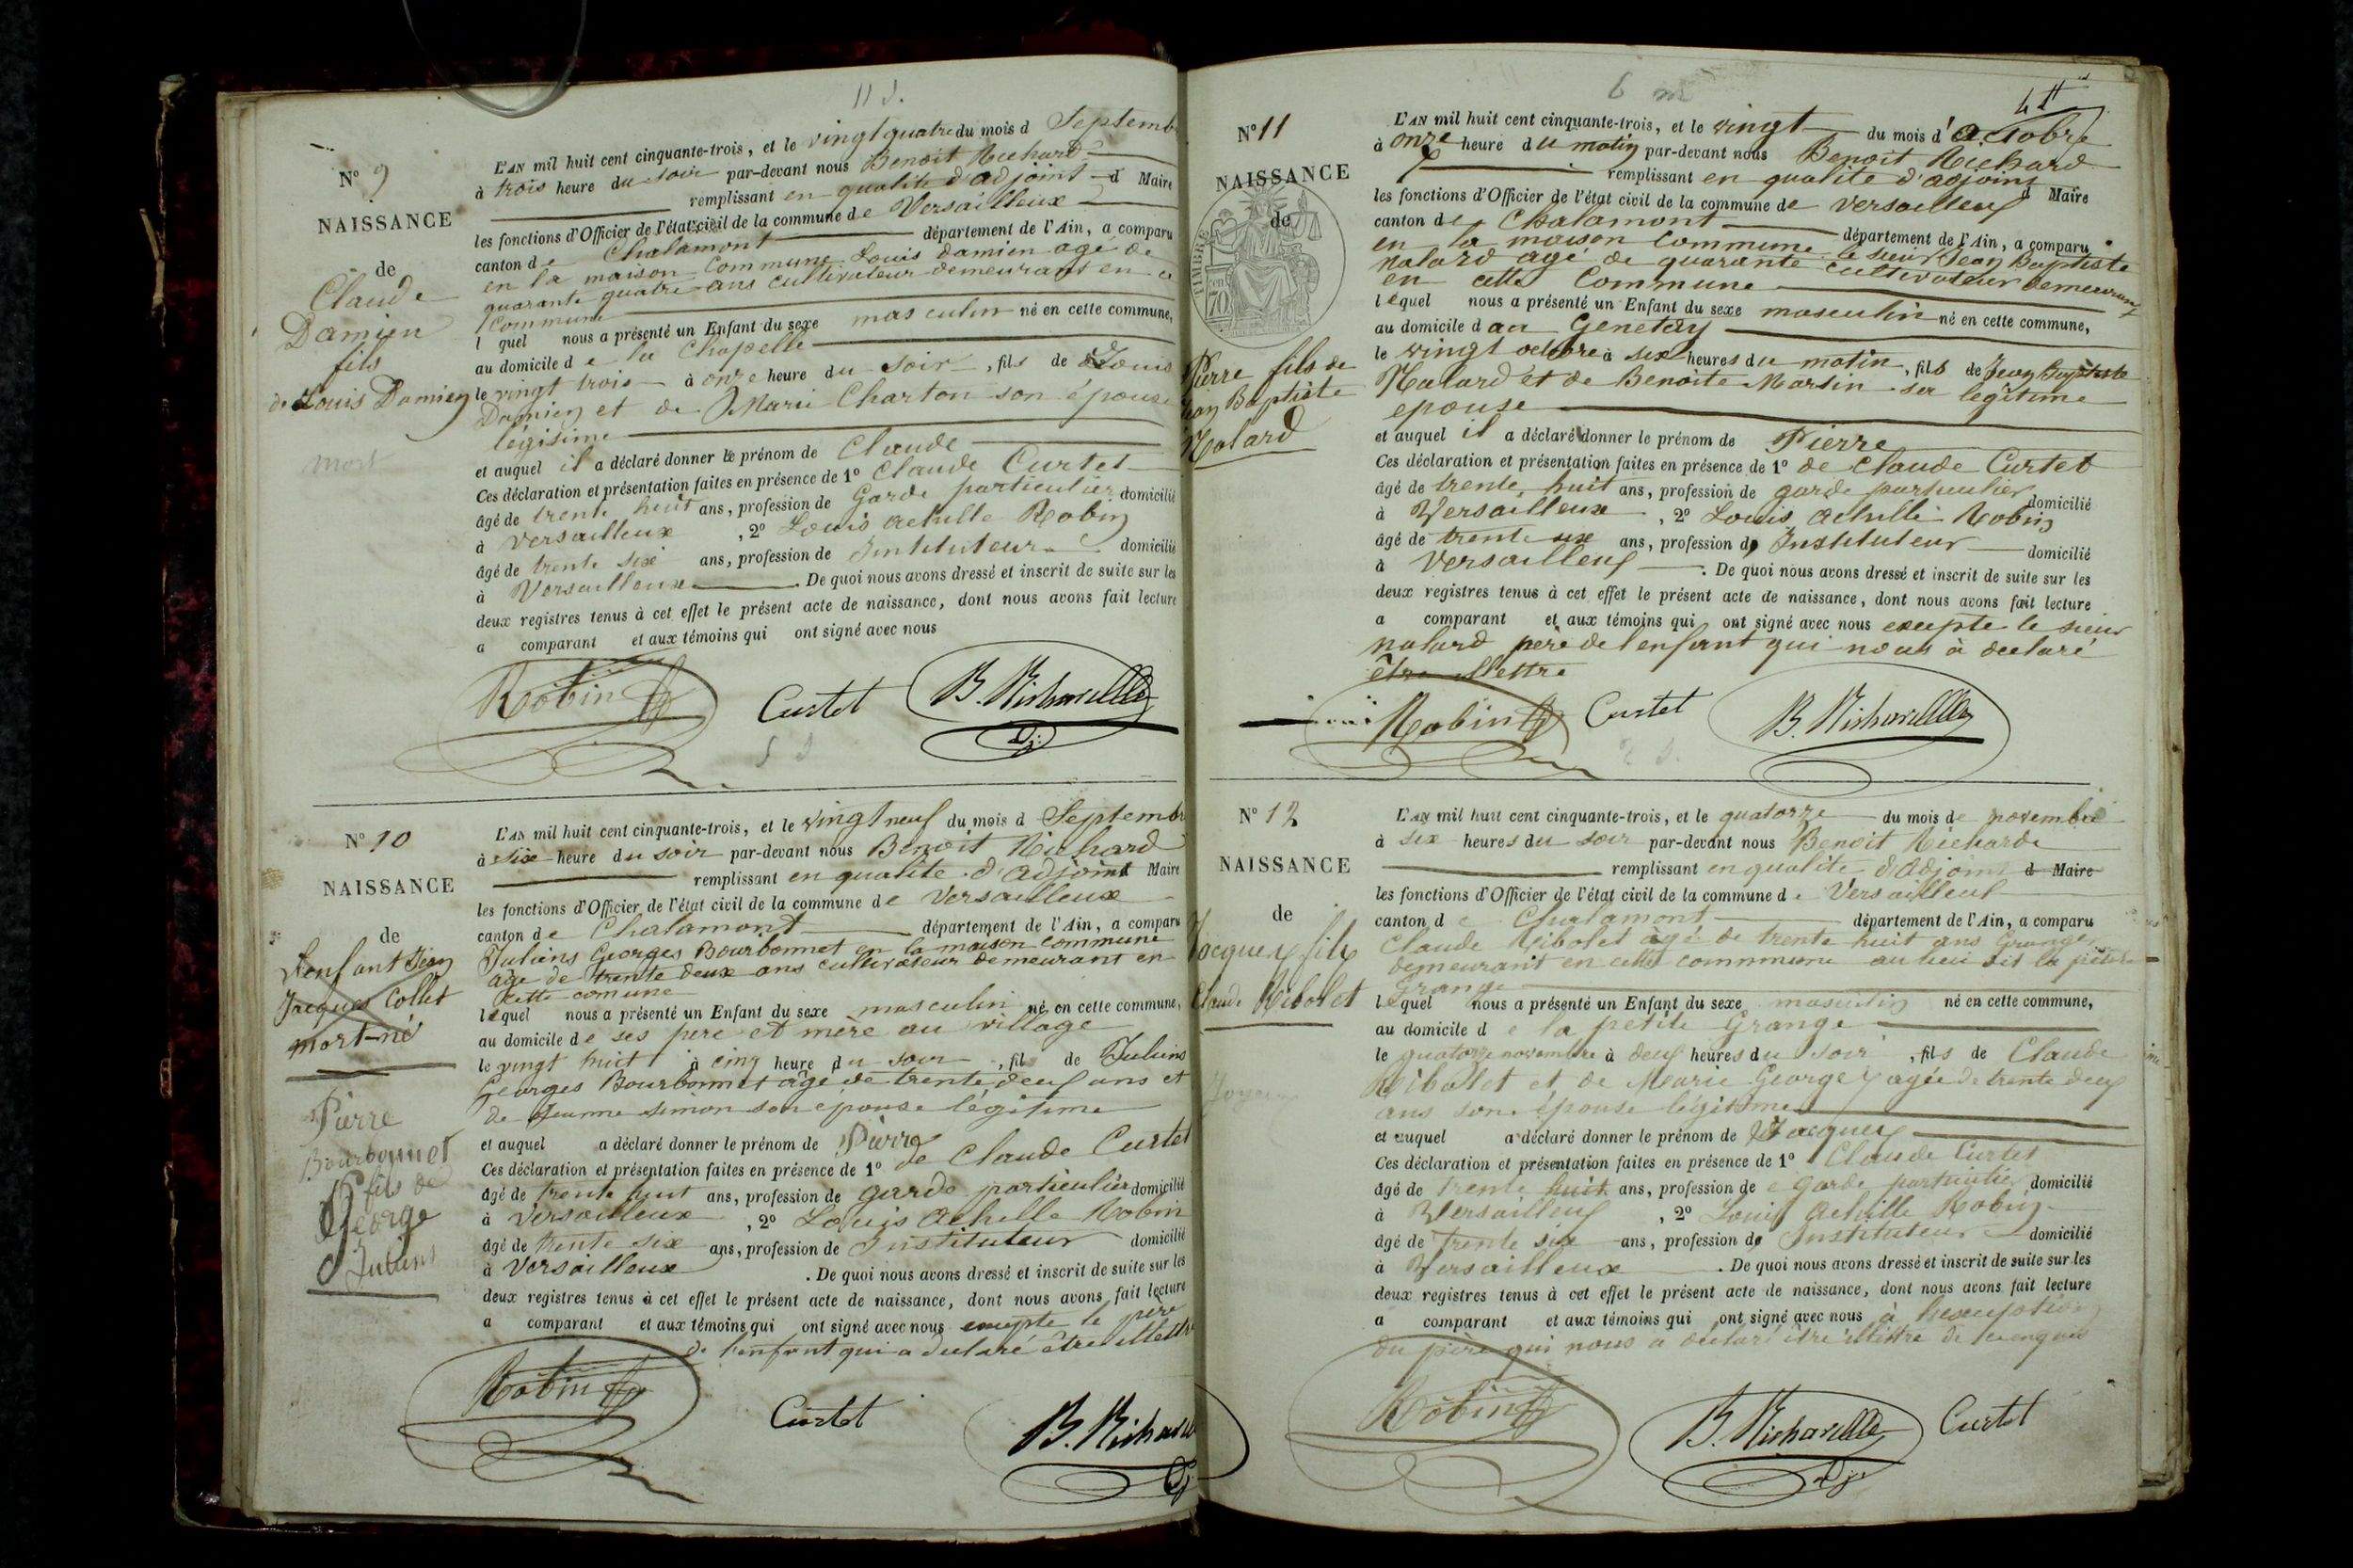 11 d.
N° 9
NAISSANCE
de
Claude
Damien
fils
de Louis Damien
mort
L'AN mil huit cent cinquante-trois, et le vingt quatre du mois d Septembre
à trois heure du soir par-devant nous Benoit Richard
remplissant en qualité d'adjoint d Maire
les fonctions d'Officier de l'état civil de la commune de Versailleux
canton de Chalamont département de l'Ain, a comparu
en la maison Commune Louis Damien agé de
quarante quatre ans cultivateur demeurant en ce
Commune
l quel nous a présenté un Enfant du sexe masculin né en cette commune,
au domicile de la Chapelle
le vingt trois à onze heure du soir, fils de Louis
Damien et de Marie Charton son épouse
légisime
et auquel il a déclaré donner le prénom de Claude
Ces déclaration et présentation faites en présence de 1° Claude Curtet
âgé de trente huit ans, profession de Garde particulier domicilié
à Versailleux, 2° Louis achille Robin
âgé de trente six ans, profession de Instituteur domicilié
à Versailleux. De quoi nous avons dressé et inscrit de suite sur les
deux registres tenus à cet effet le présent acte de naissance, dont nous avons fait lecture
a comparant et aux témoins qui ont signé avec nous
Robin Curtet B. Richard
N° 10
NAISSANCE
de
L'enfant Jean
Jacques Collet
mort-né
Pierre
Bourbonnet
fils de
George
Juliens
L'AN mil huit cent cinquante-trois, et le vingt neuf du mois d Septembre
à six heure du soir par-devant nous Benoit Richard
remplissant en qualité d'adjoint Maire
les fonctions d'Officier de l'état civil de la commune de Versailleux
canton de Chalamont département de l'Ain, a comparu
Juliens Georges Bourbonnet en la maison commune
age de trente deux ans cultivateur demeurant en
cette comune
lequel nous a présenté un Enfant du sexe masculin né en cette commune,
au domicile de ses pere et mère au village
le vingt huit à cinq heure du soir, fils de Juliens
Georges Bourbonnet âgé de trente deux ans et
de Jeanne Simon son epouse légitime
et auquel a déclaré donner le prénom de Pierre
Ces déclaration et présentation faites en présence de 1° de Claude Curtet
âgé de trente huit ans, profession de garde particulier domicilié
à Versailleux, 2° Louis achille Robin
âgé de trente six ans, profession de Instituteur domicilié
à Versailleux. De quoi nous avons dressé et inscrit de suite sur les
deux registres tenus à cet effet le présent acte de naissance, dont nous avons fait lecture
a comparant et aux témoins qui ont signé avec nous excepte le père
de l'enfant qui a declaré être illettre
Robin Curtet B. Richard
6 m
N° 11
NAISSANCE
de
TIMBRE
70
Pierre fils de
Jean Baptiste
Nalard
L'AN mil huit cent cinquante-trois, et le vingt du mois d'octobre
à onze heure du matin par-devant nous Benoit Richard
remplissant en qualité d'adjoint d Maire
les fonctions d'Officier de l'état civil de la commune de Versailleux
canton de Chalamont département de l'Ain, a comparu
en la maison commune le sieur Jean Baptiste
nalard agé de quarante cultivateur demeurant
en cette Commune
lequel nous a présenté un Enfant du sexe masculin né en cette commune,
au domicile d au Genetay
le vingt octobre à six heures du matin, fils de Jean Baptiste
Nalard et de Benoite Marsin sa legitime
epouse
et auquel il a déclaré donner le prénom de Pierre
Ces déclaration et présentation faites en présence de 1° de Claude Curtet
âgé de trente huit ans, profession de garde particulier domicilié
à Versailleux, 2° Louis Achille Robin
âgé de trente six ans, profession de Instituteur domicilié
à Versailleux. De quoi nous avons dressé et inscrit de suite sur les
deux registres tenus à cet effet le présent acte de naissance, dont nous avons fait lecture
a comparant et aux témoins qui ont signé avec nous excepte le sieur
nalard père de l'enfant qui nous à declaré
être illettre
Robin Curtet B. Richard
N° 12
NAISSANCE
de
Jacques fils
Claude Ribolet
L'AN mil huit cent cinquante-trois, et le quatorze du mois de novembre
à six heures du soir par-devant nous Benoit Richard
remplissant en qualité d'adjoint d Maire
les fonctions d'Officier de l'état civil de la commune d. Versailleux
canton de Chalamont département de l'Ain, a comparu
Claude Ribolet agé de trente huit ans Granger
demeurant en cette commune au lieu dit la petite
Grange
lequel nous a présenté un Enfant du sexe masculin né en cette commune,
au domicile de la petite Grange
le quatorze novembre à deux heures du soir, fils de Claude
Ribolet et de Marie George agée de trente deux
ans son épouse légitime
et auquel a déclaré donner le prénom de Jacques
Ces déclaration et présentation faites en présence de 1° Claude Curtet
âgé de trente huit ans, profession de garde particulier domicilié
à Versailleux, 2° Louis Achille Robin
âgé de trente six ans, profession de Instituteur domicilié
à Versailleux. De quoi nous avons dressé et inscrit de suite sur les
deux registres tenus à cet effet le présent acte de naissance, dont nous avons fait lecture
a comparant et aux témoins qui ont signé avec nous à l'exception
du père qui nous a declaré être illettre de ce enquis
Robin B. Richard Curtet